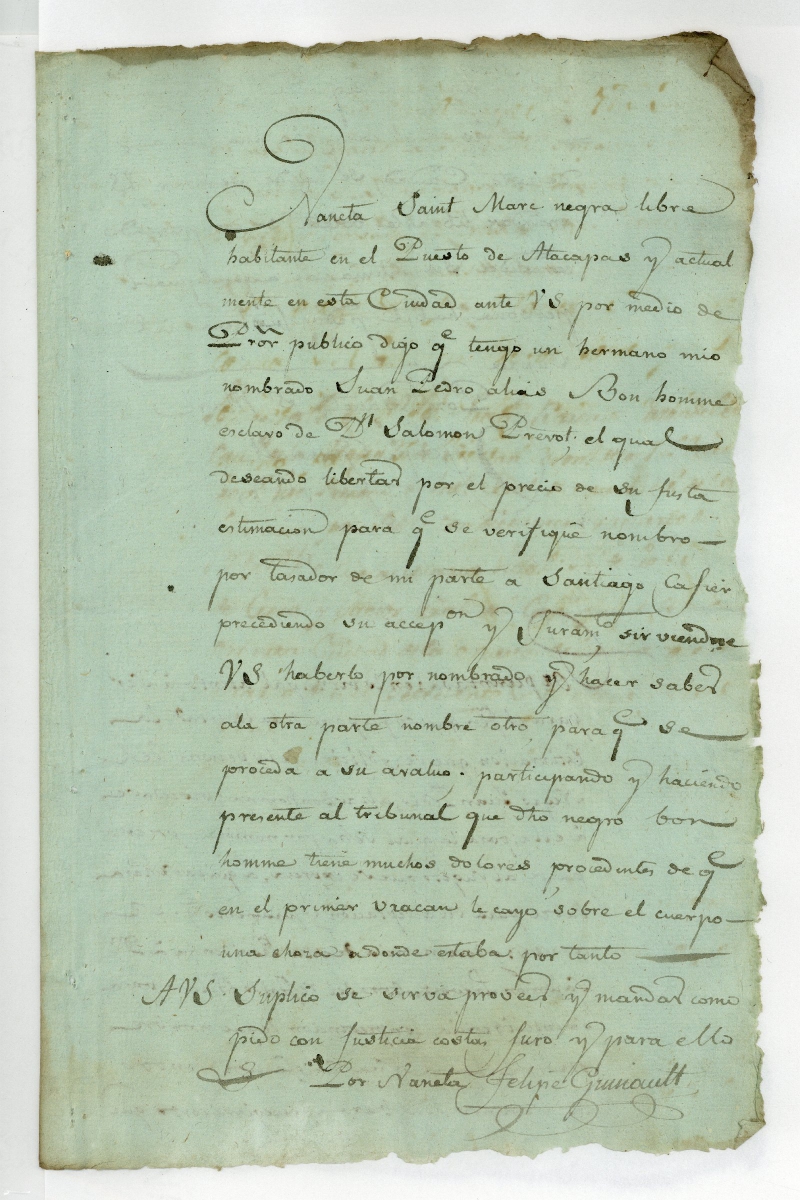 Naneta Saint Marc negra libre
habitante en el Puesto de Atacapas y actual
mente en esta Ciudad ante VS por medio de
Pror publico digo qe tengo un hermano mio
nombrado Juan Pedro alias Bon homme
esclavo de Dn Salomon Prevot, el qual
deseando libertar por el precio de su justa
estimacion para qe se verifique nombro
por tasador de mi parte a Santiago
precediendo su accepon y Juramto sirviendose
VS haberlo por nombrado y hacer saber
ala otra parte nombre otro para qe se
proceda a su avaluo. participando y haciendo
presente al tribunal que dho negro bon
homme tiene muchos dolores procedintes de qe
en el primer vracan le cayo sobre el cuerpo
una choza adonde estaba. por tanto
A VS Suplico se sirva proveer y mandar como
pido con justicia costas juro y para ello
Por Naneta Felipe Guinault